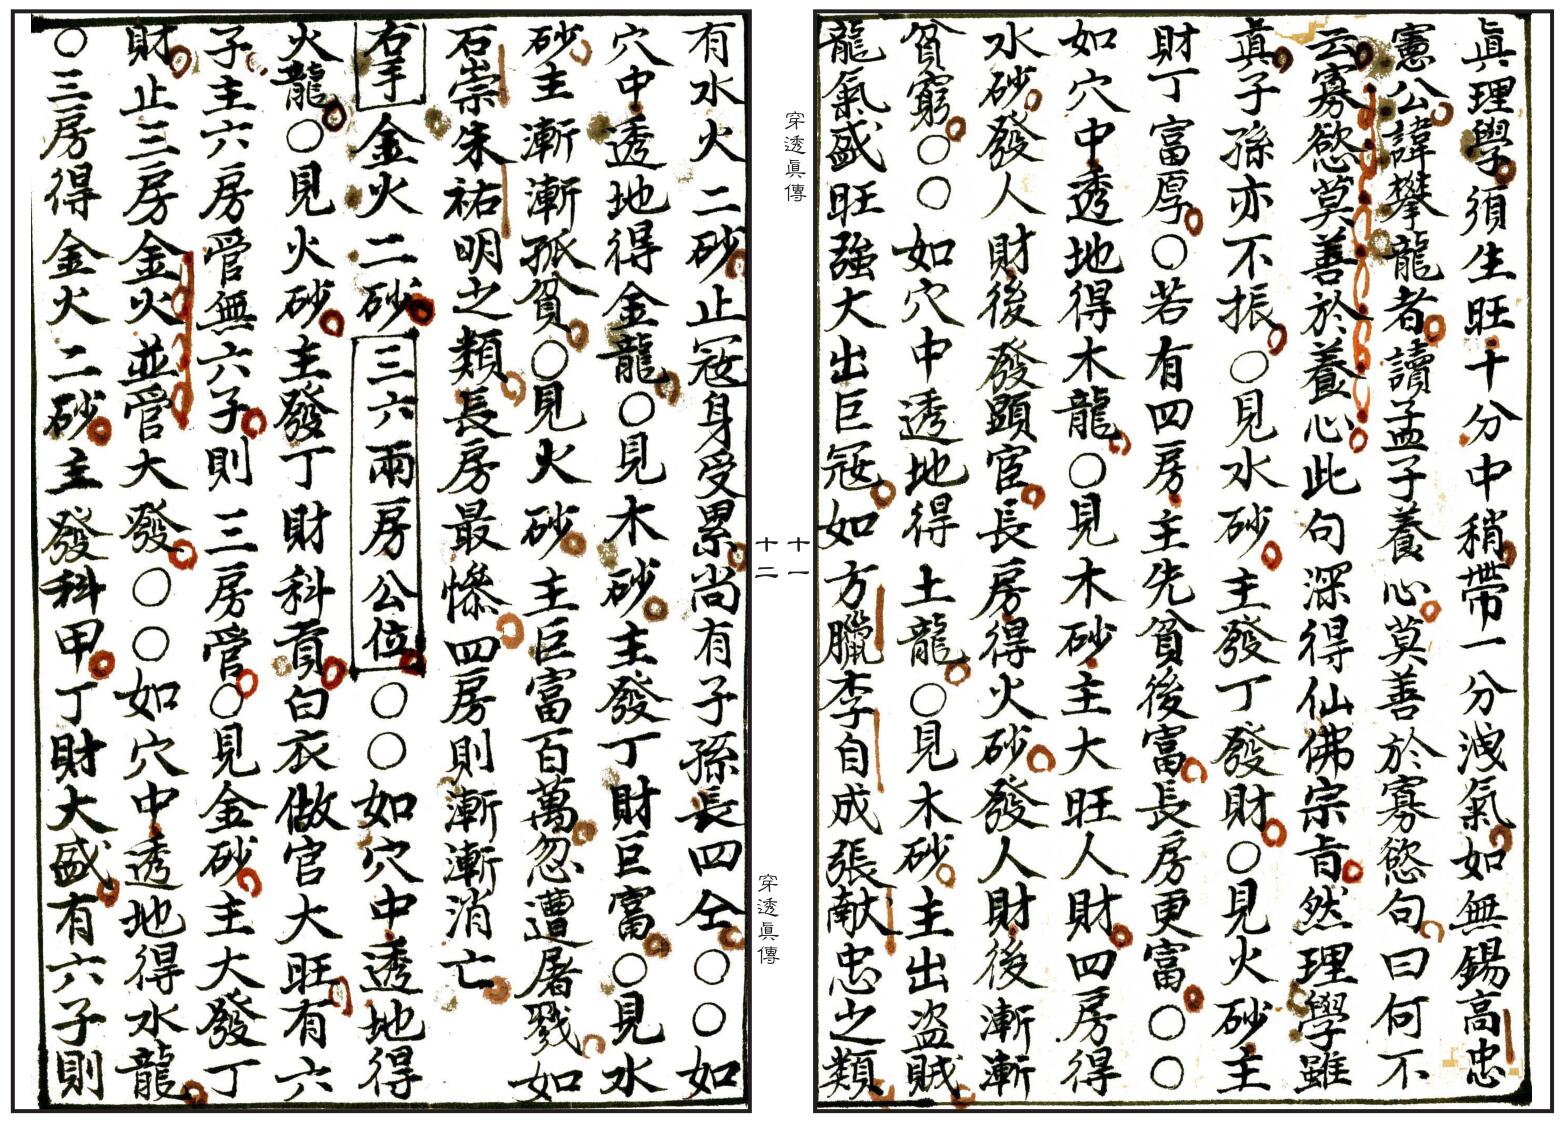 眞理學須生旺十分中稍帶一分洩氣如無錫高忠
憲公諱攀龍者讀孟子養心莫善於寡慾句曰何不
云寡慾莫善於養心此句深得仙佛宗旨然理學雖
眞子孫亦不振○見水砂主發丁發財○見火砂主
財丁富厚○若有四房主先貧後富長房更富○○
如穴中透地得木龍○見木砂主大旺人財四房得
水砂發人財後發顯宦長房得火砂發人財後漸漸
貧窮○○如穴中透地得土龍○見木砂主出盜賊
龍氣盛旺強大出巨冦如方臘李自成張献忠之類
穿透眞傳
十一
十二
穿透眞傳
有水火二砂止冦身受累尚有子孫長四仝○○如
穴中透地得金龍○見木砂主發丁財巨富○見水
砂主漸漸孤貧○見火砂主巨富百萬忽遭屠戮如
石崇朱祐明之類長房最慘四房則漸漸消亡
右手金火二砂三六兩房公位○○如穴中透地得
火龍○見火砂主發丁財科貢白衣做官大旺有六
子主六房管無六子則三房管○見金砂主大發丁
財止三房金火並管大發○○如穴中透地得水龍
○三房得金火二砂主發科甲丁財大盛有六子則